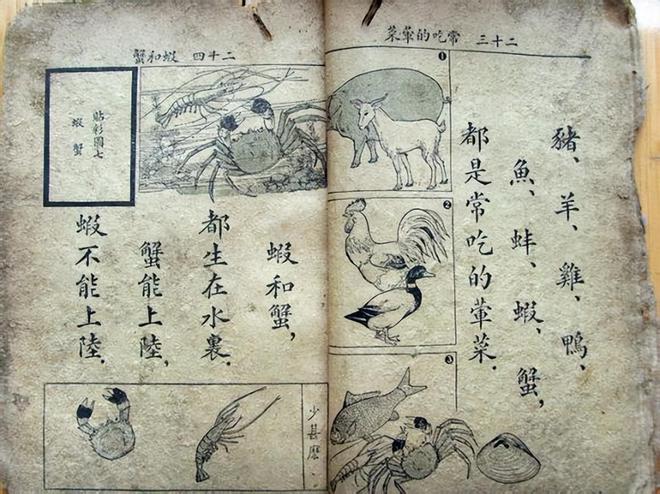 二十三 常吃的葷菜
豬、羊、雞、鴨、
魚、蚌、蝦、蟹，
都是常吃的葷菜．
❶
❷
❸
二十四 蝦和蟹
蝦和蟹，
都生在水裏．
蟹能上陸，
蝦不能上陸．
貼彩圖七
蝦 蟹
少甚麽．